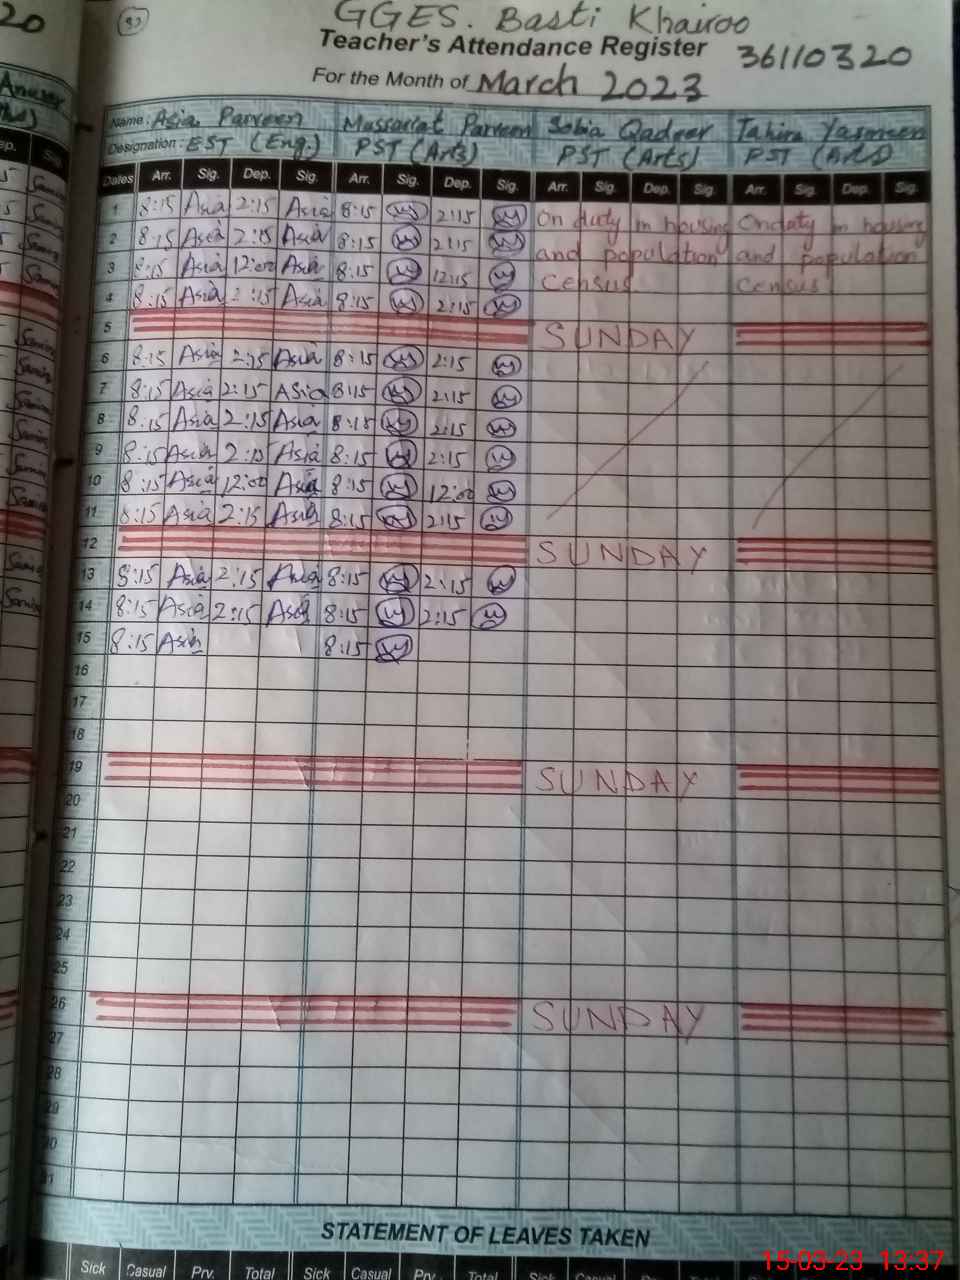 20
32
GGES. Basti Khairoo
Teacher's Attendance Register 36110320
For the Month of March 2023
Name: Asia Parveen Mussarat Parveen Sobia Qadeer Tahira Yasmeen
Designation: EST (Eng.) PST (Arts) PST (Arts) PST (Arts)
Dates Arr. Sig. Dep. Sig. Arr. Sig. Dep. Sig. Arr. Sig. Dep. Sig. Arr. Sig. Dep. Sig.
1 8:15 Asia 2:15 Asia 8:15 2:15 On duty in housing On duty in housing
2 8:15 Asia 2:15 Asia 8:15 2:15 and population and population
3 8:15 Asia 12:00 Asia 8:15 12:15 Census Census
4 8:15 Asia 2:15 Asia 8:15 2:15
5 SUNDAY
6 8:15 Asia 2:15 Asia 8:15 2:15
7 8:15 Asia 2:15 ASia 8:15 2:15
8 8:15 Asia 2:15 Asia 8:15 2:15
9 8:15 Asia 2:15 Asia 8:15 2:15
10 8:15 Asia 12:00 Asia 8:15 12:00
11 8:15 Asia 2:15 Asia 8:15 2:15
12 SUNDAY
13 8:15 Asia 2:15 Asia 8:15 2:15
14 8:15 Asia 2:15 Asia 8:15 2:15
15 8:15 Asia 8:15
16
17
18
19 SUNDAY
20
21
22
23
24
25
26 SUNDAY
27
28
29
30
31
STATEMENT OF LEAVES TAKEN
Sick Casual Prv. Total Sick Casual Prv. Total Sick Casual Prv.
15-03-23 13:37